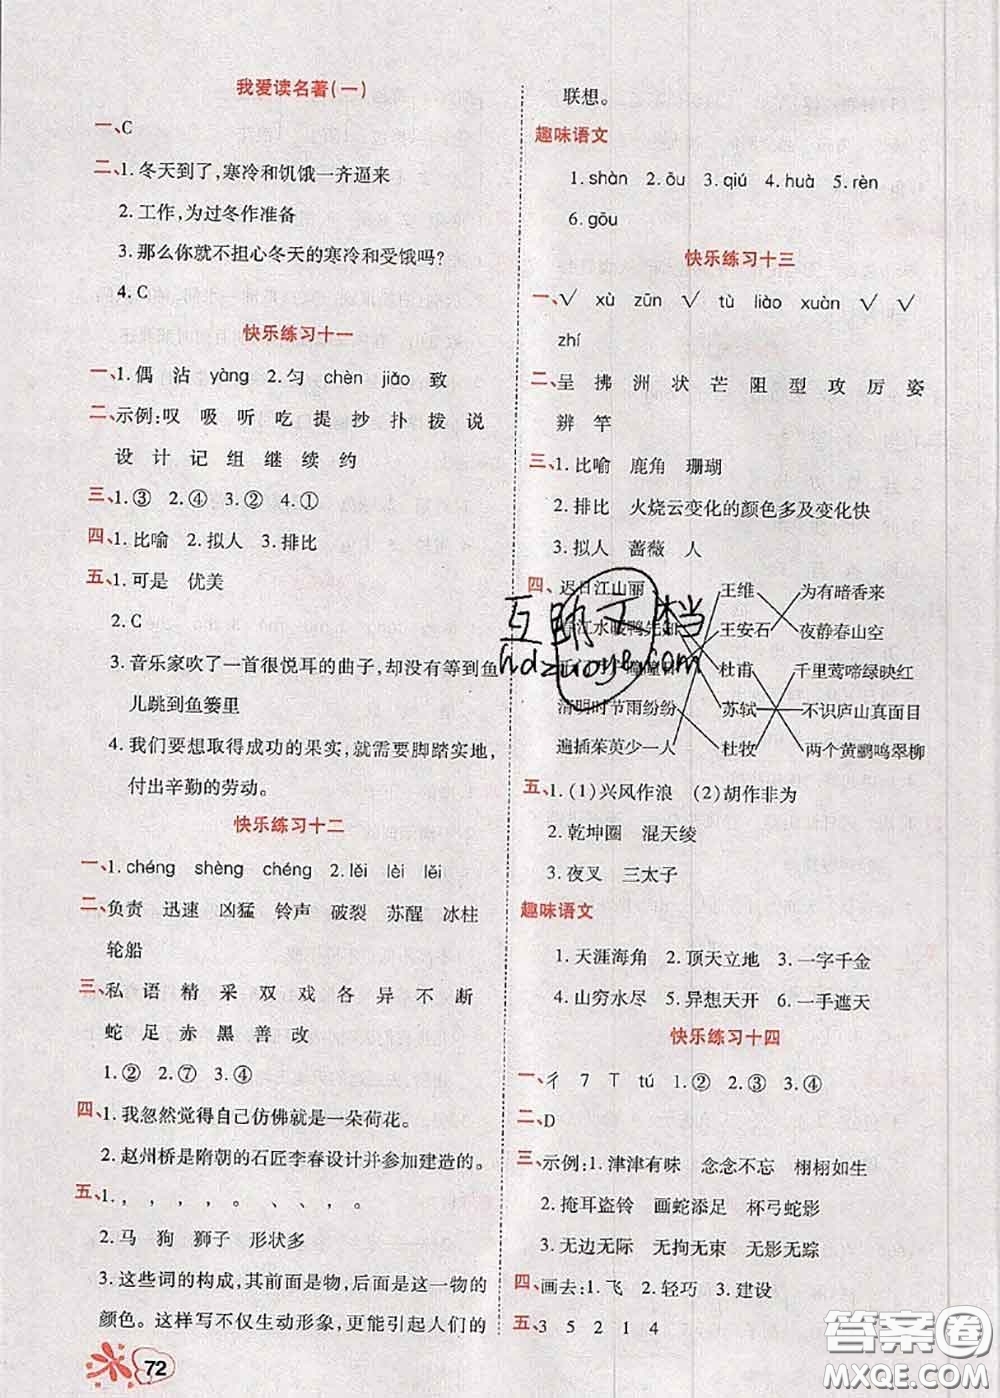 我爱读名著(一)
一、C
二、1. 冬天到了,寒冷和饥饿一齐逼来
2. 工作,为过冬作准备
3. 那么你就不担心冬天的寒冷和受饿吗?
4. C
快乐练习十一
一、1. 偶 沾 yàng 2. 匀 chèn jiǎo 致
二、示例:叹 吸 听 吃 提 抄 扑 拨 说
设 计 记 组 继 续 约
三、1. ③ 2. ④ 3. ② 4. ①
四、1. 比喻 2. 拟人 3. 排比
五、1. 可是 优美
2. C
3. 音乐家吹了一首很悦耳的曲子,却没有等到鱼
儿跳到鱼篓里
4. 我们要想取得成功的果实,就需要脚踏实地,
付出辛勤的劳动。
快乐练习十二
一、1. chéng shèng chéng 2. lěi lèi lěi
二、负责 迅速 凶猛 铃声 破裂 苏醒 冰柱
轮船
三、私 语 精 采 双 戏 各 异 不 断
蛇 足 赤 黑 善 改
1. ② 2. ⑦ 3. ④
四、1. 我忽然觉得自己仿佛就是一朵荷花。
2. 赵州桥是隋朝的石匠李春设计并参加建造的。
五、1. , , , , 。 、 、 , 。
2. 马 狗 狮子 形状多
3. 这些词的构成,其前面是物,后面是这一物的
颜色。这样写不仅生动形象,更能引起人们的
72
联想。
趣味语文
1. shàn 2. ōu 3. qiú 4. huà 5. rèn
6. gōu
快乐练习十三
一、√ xù zūn √ tù liào xuàn √ √
zhí
二、呈 拂 洲 状 芒 阻 型 攻 厉 姿
辨 竿
三、1. 比喻 鹿角 珊瑚
2. 排比 火烧云变化的颜色多及变化快
3. 拟人 蔷薇 人
四、迟日江山丽 王维 为有暗香来
江水暖鸭先知 王安石 夜静春山空
杜甫 千里莺啼绿映红
清明时节雨纷纷 苏轼 不识庐山真面目
遍插茱萸少一人 杜牧 两个黄鹂鸣翠柳
五、1. (1)兴风作浪 (2)胡作非为
2. 乾坤圈 混天绫
3. 夜叉 三太子
趣味语文
1. 天涯海角 2. 顶天立地 3. 一字千金
4. 山穷水尽 5. 异想天开 6. 一手遮天
快乐练习十四
一、彳 7 T tú 1. ② 2. ③ 3. ①
二、D
三、示例:1. 津津有味 念念不忘 栩栩如生
2. 掩耳盗铃 画蛇添足 杯弓蛇影
3. 无边无际 无拘无束 无影无踪
四、画去:1. 飞 2. 轻巧 3. 建设
五、3 5 2 1 4
互助文档
hdzuoye.com
答案圈
MXQE.COM